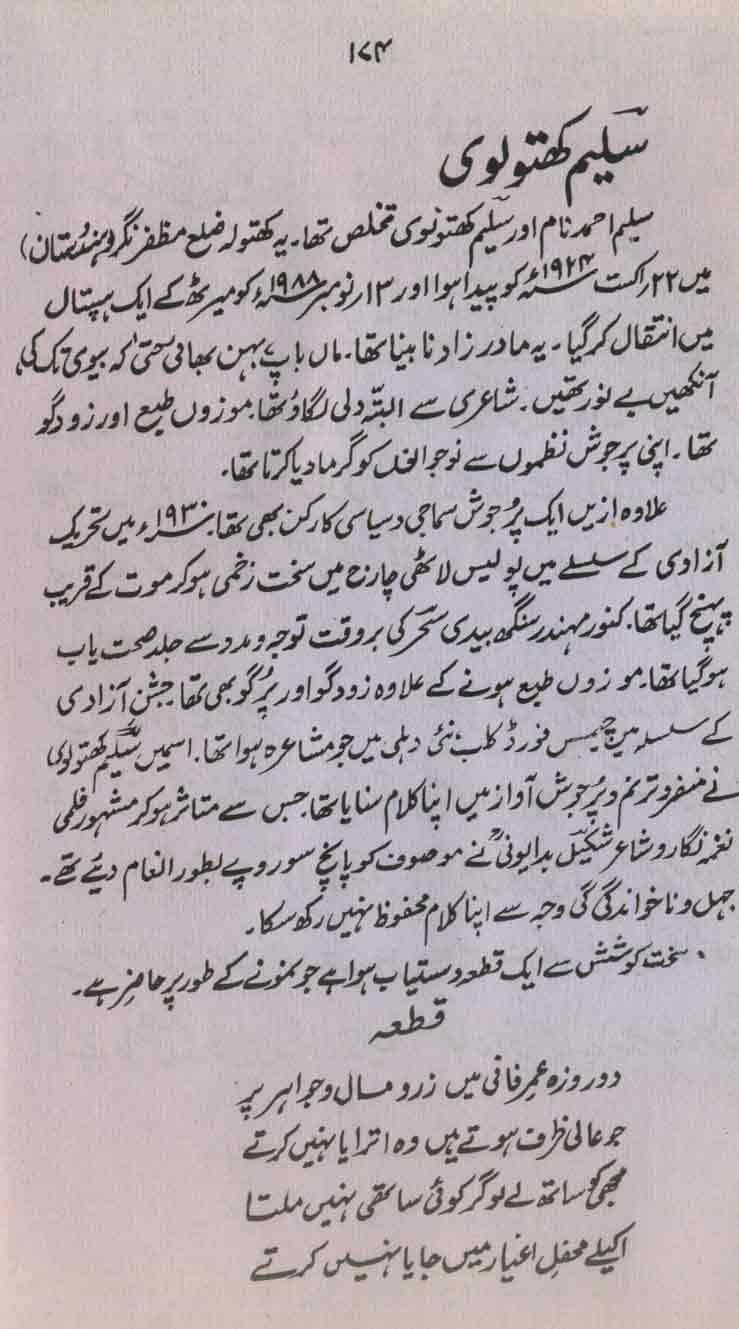 ۱۷۴
سلیم کھتولوی
سلیم احمد نام اور سلیم کھتولوی تخلص تھا۔ یہ کھتولہ ضلع مظفر نگر (ہندستان)
میں ۲۲ اگست ۱۹۲۴ء کو پیدا ہوا اور ۱۳ نومبر ۱۹۸۸ء کو میرٹھ کے ایک ہسپتال
میں انتقال کر گیا۔ یہ مادر زاد نابینا تھا۔ ماں باپ، بہن بھائی حتیٰ کہ بیوی تک کی
آنکھیں بے نور تھیں۔ شاعری سے البتہ دلی لگاؤ تھا، موزوں طبع اور زود گو
تھا۔ اپنی پر جوش نظموں سے نوجوانوں کو گرما دیا کرتا تھا۔
علاوہ ازیں ایک پُر جوش سماجی و سیاسی کارکن بھی تھا۔ ۱۹۳۰ء میں تحریک
آزادی کے سلسلے میں پولیس لاٹھی چارج میں سخت زخمی ہو کر موت کے قریب
پہنچ گیا تھا۔ کنور مہندر سنگھ بیدی سحر کی بروقت توجہ و مدد سے جلد صحت یاب
ہو گیا تھا۔ موزوں طبع ہونے کے علاوہ زود گو اور پُر گو بھی تھا۔ جشن آزادی
کے سلسلہ میں چیمس فورڈ کلب نئی دہلی میں جو مشاعرہ ہوا تھا۔ اسمیں سلیم کھتولوی
نے منفرد ترنم و پُر جوش آواز میں اپنا کلام سنایا تھا جس سے متاثر ہو کر مشہور فلمی
نغمہ نگار و شاعر شکیل بدایونی نے موصوف کو پانچ سو روپے بطور انعام دیئے تھے۔
جہل و ناخواندگی کی وجہ سے اپنا کلام محفوظ نہیں رکھ سکا۔
سخت کوشش سے ایک قطعہ دستیاب ہوا ہے جو نمونے کے طور پر حاضر ہے۔
قطعہ
دو روزہ عمرِ فانی میں زر و مال و جواہر پر
جو عالی ظرف ہوتے ہیں وہ اترایا نہیں کرتے
مجھی کو ساتھ لے لو گر کوئی ساتھی نہیں ملتا
اکیلے محفلِ اغیار میں جایا نہیں کرتے